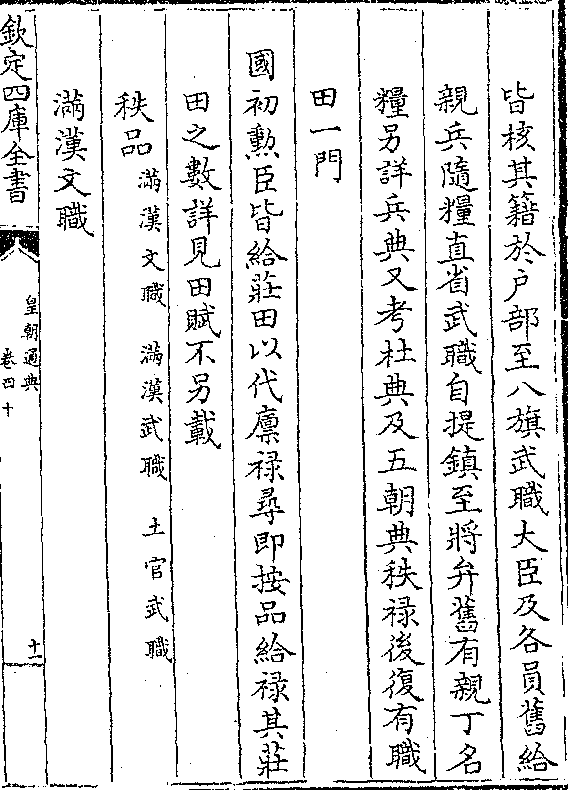 皆核其籍於户部至八旗武職大臣及各員舊給
親兵隨糧直省武職自提鎮至將弁舊有親丁名
糧另詳兵典又考杜典及五朝典秩禄後復有職
田一門
國初勲臣皆給莊田以代廪禄尋即按品給禄其莊
田之數詳見田賦不另載
秩品 滿漢文職 滿漢武職 土官武職
滿漢文職
欽定四庫全書
皇朝通典
卷四十
十一